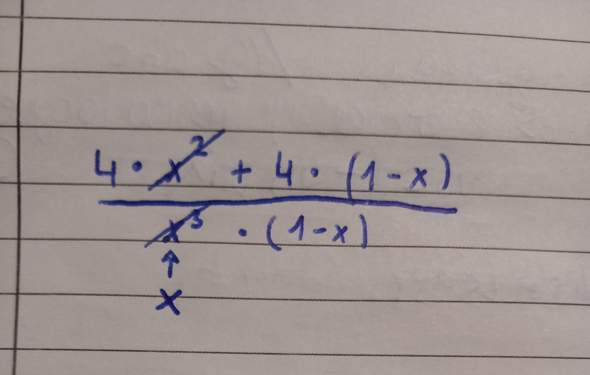 4 · x² + 4 · (1-x)
x³ · (1-x)
↑
x